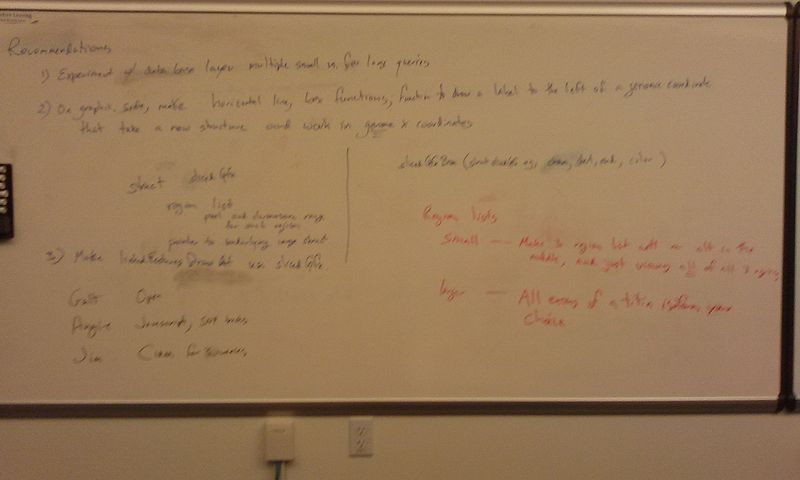 Recommendations
1) Experiment w/ data base layer multiple small vs. few large queries
2) On graphic side, make horizontal line, box functions, function to draw a label to the left of a genomic coordinate
that take a new structure and work in genomic coordinates
struct slicedGfx
region list
pixel and chromosome range
for each region
pointer to underlying image struct
3) Make linkedFeaturesDrawAt use slicedGfx
Galt Open
Angie Javascript,
Jim
slicedGfxBox (struct slicedGfx sg, chrom, start, end, color)
Region lists
Small — Make 3 region list with an alt in the
middle, and just viewing all of all 3 regions
large — All exons of a titin isoform, your
choice